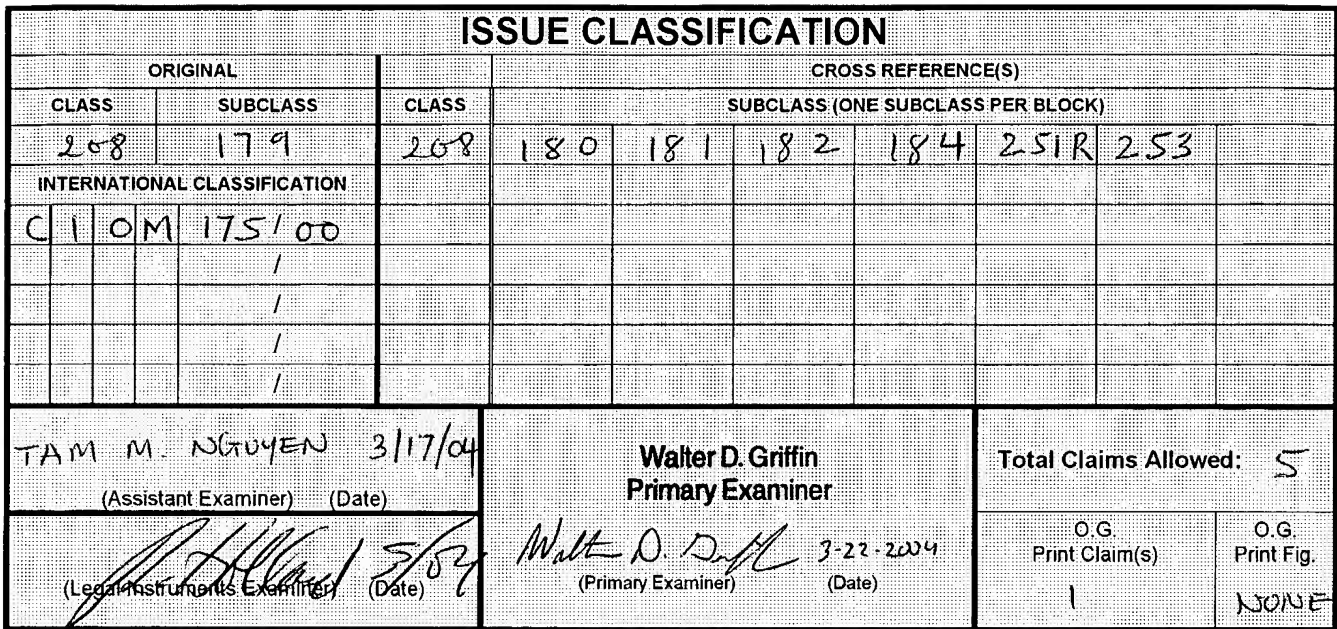 ISSUE CLASSIFICATION
ORIGINAL CROSS REFERENCE(S)
CLASS SUBCLASS CLASS SUBCLASS (ONE SUBCLASS PER BLOCK)
208 179 208 180 181 182 184 251R 253
INTERNATIONAL CLASSIFICATION
C 1 0 M 175/00
/
/
/
/
TAM M. NGUYEN 3/17/04
(Assistant Examiner) (Date)
5/04
(Legal Instruments Examiner) (Date)
Walter D. Griffin
Primary Examiner
Walter D. Griffin 3-22-2004
(Primary Examiner) (Date)
Total Claims Allowed: 5
O.G.
Print Claim(s)
1
O.G.
Print Fig.
NONE